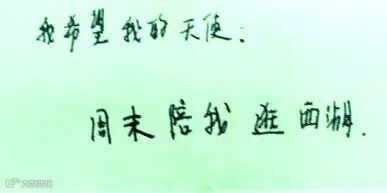 我希望我的天使：
周末陪我逛西湖.